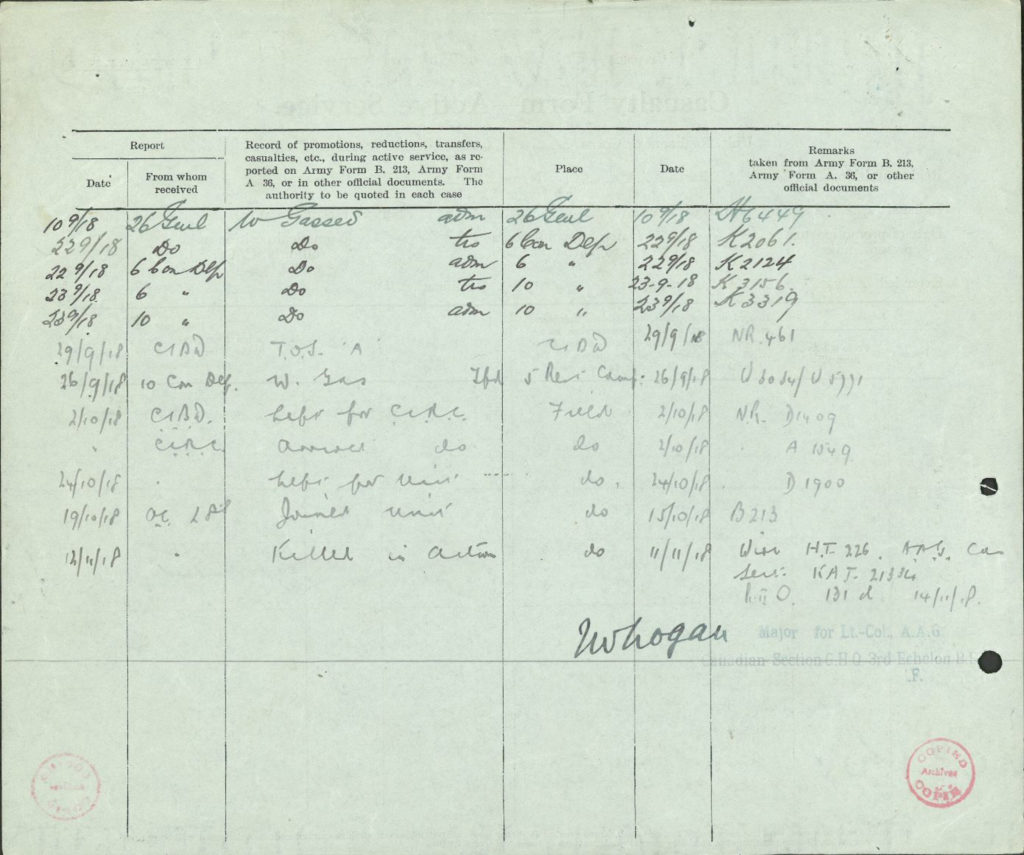 Report
Date
From whom received
Record of promotions, reductions, transfers, casualties, etc., during active service, as reported on Army Form B. 213, Army Form A 36, or in other official documents. The authority to be quoted in each case
Place
Date
Remarks taken from Army Form B. 213, Army Form A. 36, or other official documents
10 9/18 26 Genl W Gassed adm 26 Genl 10 9/18 H6449
22 9/18 Do Do trs 6 Con Dep 22 9/18 K2061.
22 9/18 6 Con Dep Do adm 6 " 22 9/18 K2124
23 9/18. 6 " Do trs 10 " 23-9-18 K3156.
23 9/18 10 " Do adm 10 " 23 9/18 K3319
29/9/18 CIBD T.O.S. "A" CIBD 29/9/18 NR. 461
26/9/18 10 Con Dep. W. Gas Tfd 5 Rest Camp. 26/9/18
2/10/18 CIBD. Left for C.C.R.C. Field 2/10/18 N.R. D1409
" C.C.R.C. Arrived do do 2/10/18 A 1549
24/10/18 " Left for Unit do. 24/10/18 D 1900
19/10/18 OC 28 Joined Unit do 15/10/18 B213
12/11/18 " Killed in Action do 11/11/18 Wire H.T. 226. A.A.G. Can
Sect. KAT. 2133
O. 131 d 14/11/18.
Major for Lt.-Col. A.A.G
Canadian Section G.H.Q. 3rd Echelon B.E.
F.
COPIED
Archives
COPIED